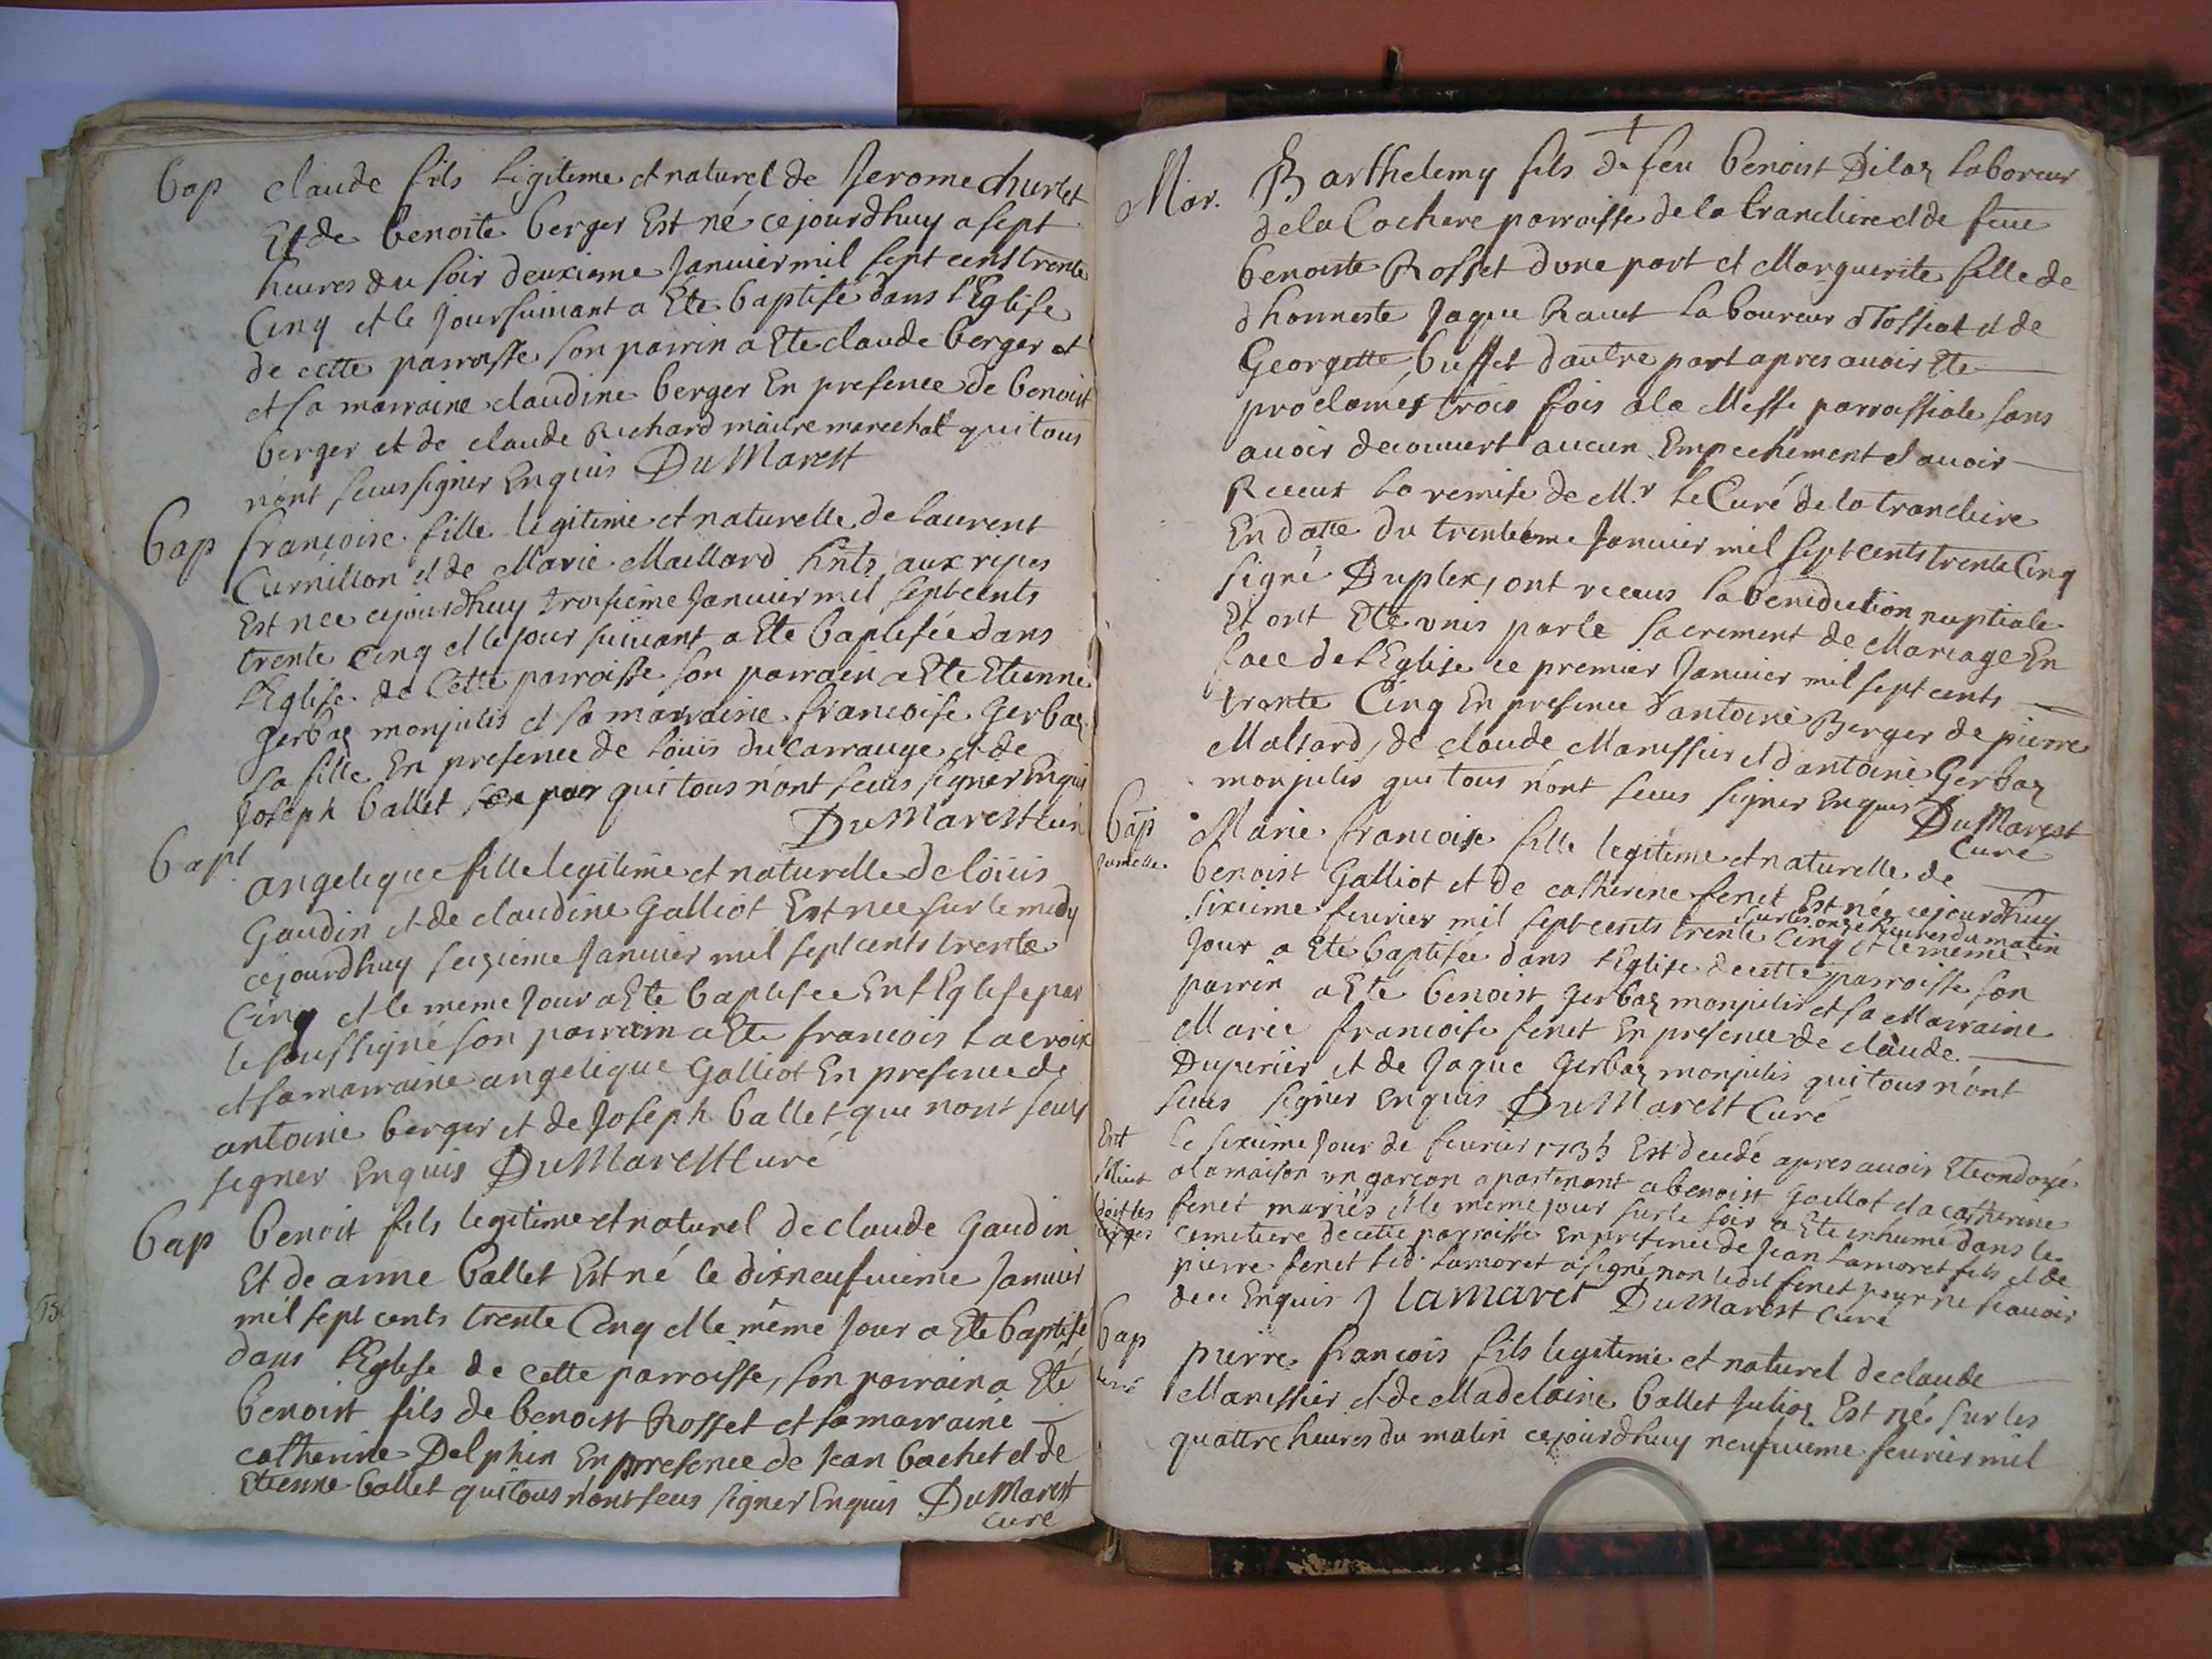 Bap claude fils Legitime et naturel de Jerome churlet
Et de benoite berger Est né cejourdhuy a sept
heures du soir deuxieme Januier mil sept cens trente
Cinq et le Jour suiuant a Ete baptisé dans l'Eglise
de cette parroisse, son parrin a Ete claude berger et
et sa marraine claudine berger En presence de benoist
berger et de claude Richard maitre marechal qui tous
n'ont sceus signer Enquis DuMarest
Bap francoise fille legitime et naturelle de laurent
Curnillon et de Marie Maillard aux ripes
Est nee cejourdhuy troisieme Januier mil sept cents
trente cinq et le jour suiuant a Ete baptisée dans
l'Eglise de Cette parroisse son parrain a Ete Etienne
gerbaz monjulis et sa marraine francoise Gerbaz
sa fille En presence de Loüis ducarrauge et de
Joseph ballet qui tous n'ont sceus signer Enquis
DuMarest curé
Bapt. angelique fille legitime et naturelle de loüis
Gaudin et de claudine Galliot Est nee sur le midy
cejourdhuy seizieme Januier mil sept cents trente
Cinq et le meme Jour a Ete baptisee En l'Eglise par
le soussigné son parrain a Ete francois Lacroix
et sa marraine angelique Galliot En presence de
antoine berger et de Joseph ballet que nont sceus
signer Enquis DuMarest curé
Bap benoit fils legitime et naturel de claude Gaudin
Et de anne ballet Est né le disneufuieme Januier
mil sept cents trente Cinq et le même Jour a Ete baptisé
dans l'Eglise de cette parroisse, son parrain a Eté
benoist fils de benoist Rosset et sa marraine
catherine Delphin En presence de Jean bachet et de
Etienne ballet qui tous n'ont sceus signer Enquis DuMarest
curé
Mar. Barthelemy fils de feu benoist Dilaz laboreur
de la Cochere parroisse de la tranchiere et de feüe
benoiste Rosset dune part et Marguerite fille de
dhonneste Jaque Rauet Laboureur d'Tossiat et de
Georgette buffet d'autre part apres auoir Ete
proclamés trois fois a la Messe parroissiale sans
auoir decouuert aucun Empechement et auoir
Receux La remise de Mr Le Curé de la tranchiere
En datte du trentième Januier mil sept cents trente Cinq
signé Duplex, ont receus la benidiction nuptiale
Et ont Eté unis par le sacrement de Mariage En
face de l'Eglise ce premier Januier mil sept cents
trente Cinq En presence d'antoine Berger de pierre
Maltard, de claude Manissier et d'antoine Gerbaz
monjulis qui tous n'ont sceus signer Enquis DuMarest
Curé
Bap Jumelle Marie francoise fille legitime et naturelle de
benoist Galliot et de catherine fenet Est née cejourdhuy
sur les onze heures du matin
sixieme feurier mil sept cents trente Cinq et le meme
Jour a Eté baptisée dans l'Eglise de cette parroisse son
parrin a Eté benoist gerbaz monjulis et sa Marraine
Marie francoise fenet En presence de claude
Duperier et de Jaque gerbaz monjulis qui tous n'ont
sceus signer Enquis DuMarest Curé
Ent Le sixieme Jour de feurier 1735 Est decedé apres auoir Ete ondoyé
a la maison un garcon apartenant a benoist Galliot et a catherine
fenet mariés et le meme jour sur le soir a Ete inhumé dans le
cemetiere de cette parroisse En presence de Jean Lamoret fils et de
pierre fenet led. Lamoret a signé non ledit fenet pour ne scauoir
dece Enquis J lamaret DuMarest Curé
Bap pierre francois fils legitime et naturel de claude
Manissier et de Madelaine ballet Julioz Est né sur les
quattre heures du matin cejourdhuy neufuieme feurier mil